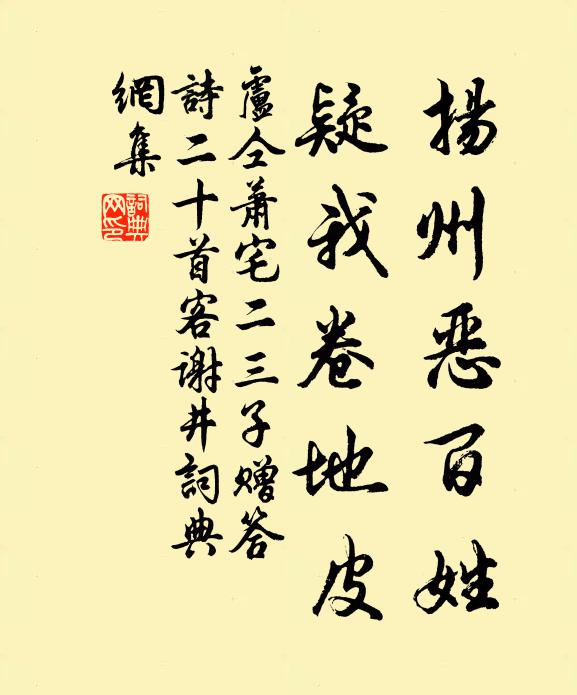 揚州惡百姓
疑我卷地皮
盧仝蕭宅二三子贈答
詩二十首客謝井詞典
網集
詞典網印